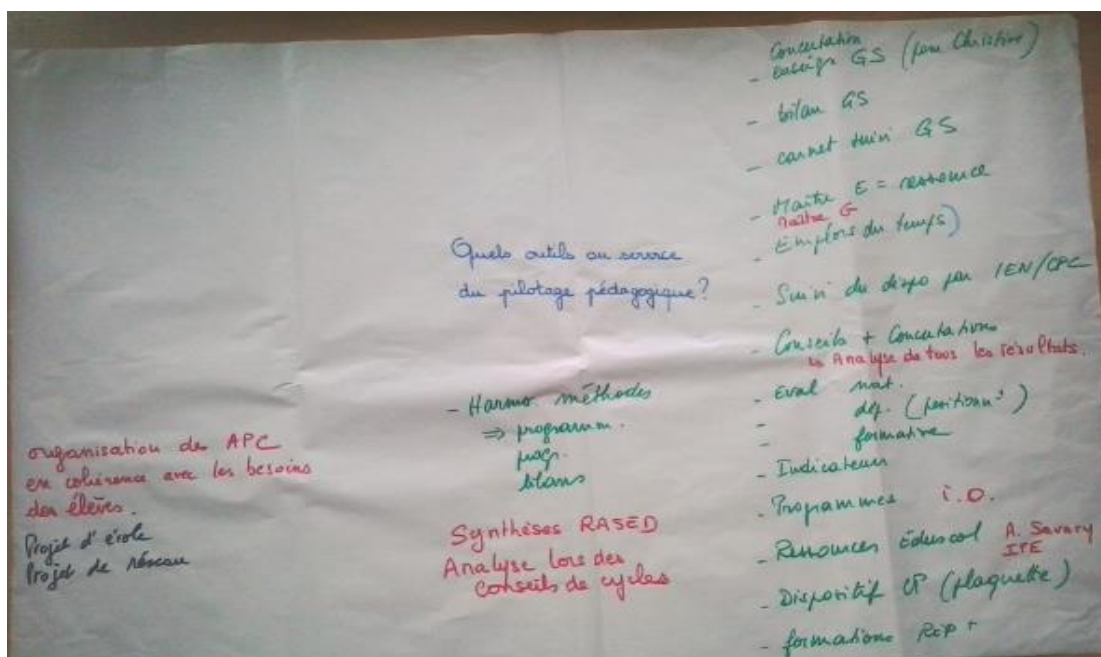 Quels outils au service
du pilotage pédagogique?
organisation des APC
en cohérence avec les besoins
des élèves.
Projet d'école
Projet de réseau
- Harmo. méthodes
⇒ programm.
progr.
bilans
Synthèses RASED
Analyse lors des
conseils de cycles
Concertation
- enseign GS (pour Christine)
- bilan GS
- carnet suivi GS
- Maître E = ressource
Maître G
- Emplois du temps)
- Suivi du dispo par IEN/CPC
- Conseils + Concertations
↳ Analyse de tous les résultats.
- Eval nat.
- dép. (positionnt)
- formative
- Indicateurs
- Programmes I.O.
- Ressources Eduscol A. Savary
IFE
- Dispositif CP (plaquette)
- formations Rep +